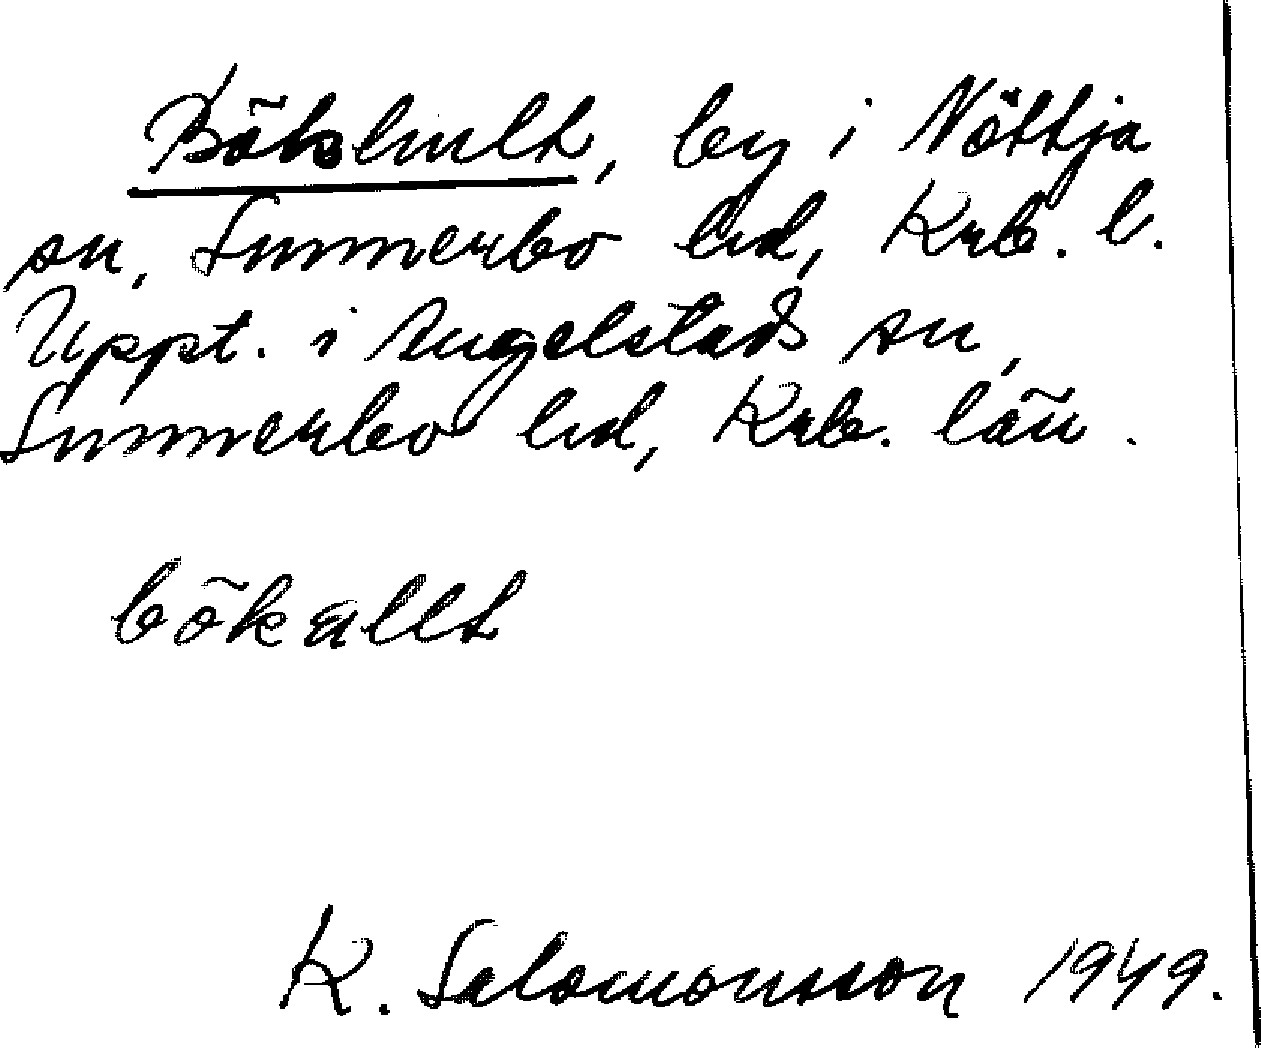 Bökhult, by i Nöttja
sn, Sunnerbo hd, Krb. l.
Uppt. i Angelstads sn,
Sunnerbo hd, Krb. län.
bökallt
K. Salomonsson 1949.